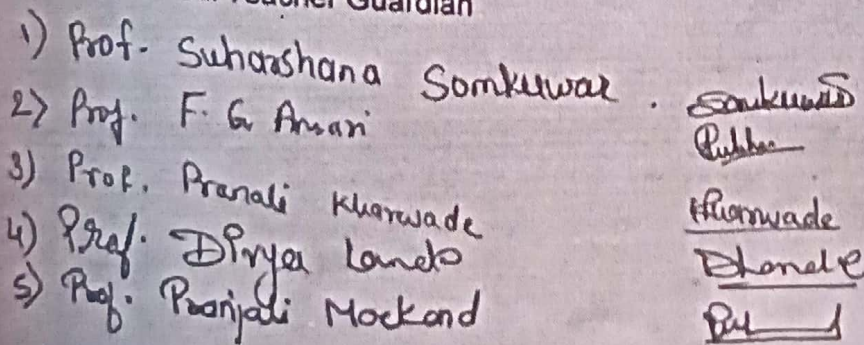 Guardian
1) Prof. Suharshana Somkuwar . Somkuwar
2) Prof. F. G Ansari
3) Prof. Pranali Kharwade Kharwade
4) Prof. Divya Lande Dhande
5) Prof. Pranjali Mockand